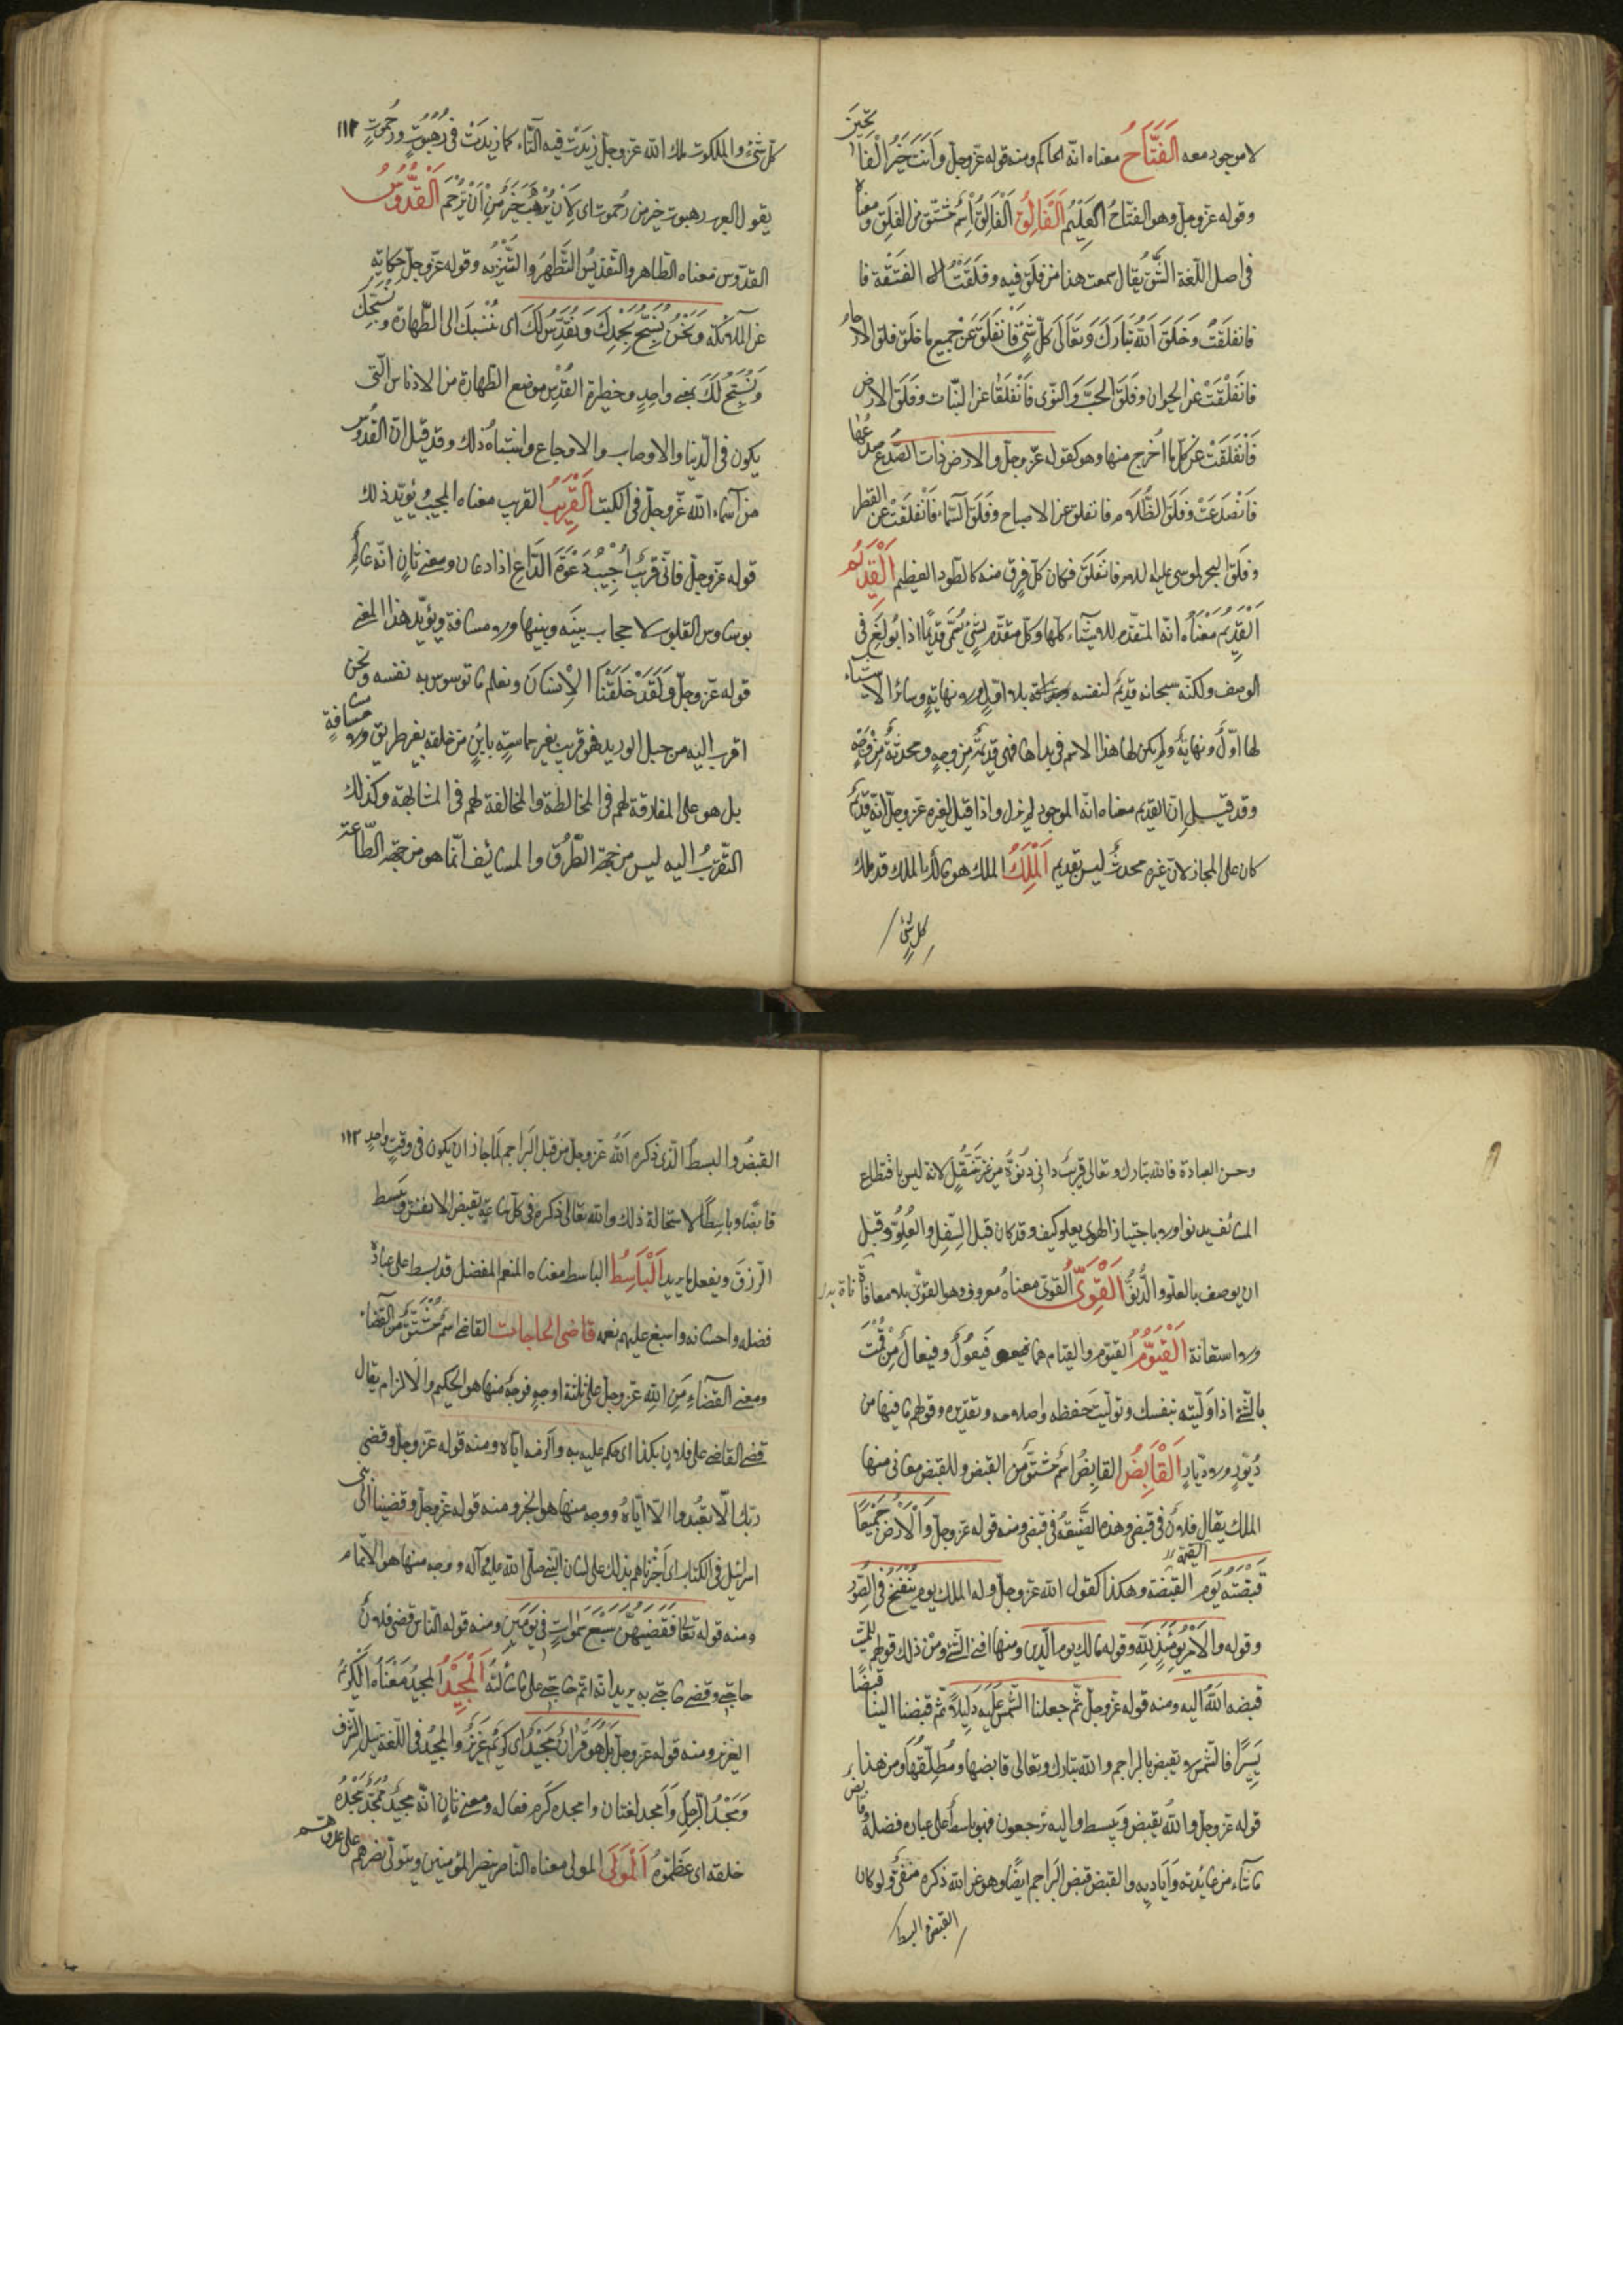 لا موجود معه اَلْفَتَّاحُ معناه انّه الحاكم ومنه قوله عزّوجلّ وَاَنْتَ خَيْرُ الْفَاتِحينَ
وقوله عزّوجلّ وهو الفتّاحُ الْعَلِيْمُ اَلْفَالِقُ اَلْفَالِقُ اِسْمٌ مُشْتَقٌ من الفَلَقِ ومعناه
فى اصل اللّغة الشَّقُّ يُقال سمعت هذا من فَلَقِ فيه وفَلَقْتُ الفستقة فا
فانفلقَتْ وَخَلَقَ اَللّٰهُ تَبَارَكَ وَتَعَالَى كلّ شَئٍ فَانْفَلَقَ عَنْ جميع ما خلق فلق الارحام
فانْفَلَقَتْ عن الحيوان وفَلَقَ الحَبَّ وَالنّوى فَانْفَلَقَا عن النّبات وفَلَقَ الارض
فَانْفَلَقَتْ عن كلّ ما اُخرج منها وهو كقوله عزّوجلّ والارض ذات الصَّدْع صدعها
فَانْصَدَعَتْ وَفَلَقَ الظَّلَام فانفلق عن الاصباح وفَلَقَ السّمآء فَانْفَلَقَتْ عن القطر
وفَلَقَ البحر لموسى عليه السلام فانفَلَقَ فكان كلّ فِرْقٍ منه كالطّود العظيم اَلْقَدِيْمُ
اَلْقَدِيْمُ مَعْنَاهُ انّه المتقدّم للاشيآء كلّها وكلّ متقدّم لِشَئٍ يُسَمّى قديمًا اذا بُولِغَ فى
الوصف ولكنّه سبحانه قديم لنفسه بلا اوّلٍ ولا نهايةٍ وسائر الاشيآء
لها اوّلٌ ونهايةٌ ولم يكن لها هذا الاسم فى بدئها فهى قديمةٌ مِنْ وجهٍ ومحدثةٌ مِنْ وجهٍ
وقد قيل اِنّ القديم معناه انّه الموجود لم يزل واذا قيل لغيره عزّوجلّ انّه قديمٌ
كان على المجاز لانّ غيره محدثٌ ليس بقديم اَلْمَلِكُ الملك هو مالك الملك قد ملك
كل شئ
١١٢
كلّ شئٍ والملكوت ملك اللّه عزّوجلّ زِيْدَتْ فيه التّاء كما زيدَتْ فى رُهْبُوتٍ ورَحَموتٍ
يقول العرب رهبوت خير من رحموت اى لِاَنْ يُرْهَبَ خَيْرٌ مِنْ اَنْ يُرْحَمَ اَلْقُدُّوْسُ
القدّوس معناه الطّاهر والتّقديس التَّطهِيرُ والتَّنْزِيْهُ وقوله عزّوجلّ حكايةً
عن الملائكة وَنَحْنُ نُسَبِّحُ بِحَمْدِكَ وَنُقَدِّسُ لَكَ اى نَنْسُبُكَ الى الطّهارة ونُسَبِّحُكَ
وَنُسَبِّحُ لَكَ بمعنى واحدٍ وحظيرة القُدْسِ موضع الطّهارة من الادناس الّتى
يكون فى الدّنيا والاوصاب والاوجاع واشباه ذلك وقد قيل انّ القُدّوس
من اَسْمَاء اللّه عزّوجلّ فى الكتب اَلْقَرِيْبُ القريب معناه المجيب ويؤيّد ذلك
قوله عزّوجلّ فانّى قَرِيْبٌ اُجِيْبُ دَعْوَةَ الدَّاعِ اذا دعان ومعنى ثانٍ انّه عالِمٌ
بوساوس القلوب لا حجاب بينه وبينها ولا مسافة ويؤيّد هذا المعنى
قوله عزّوجلّ وَلَقَدْ خَلَقْنَا الْاِنْسَانَ ونعلم ما توسوس به نفسه ونحن
اقرب اليه من حبل الوريد فهو قريب بغير مماسّةٍ باينٍ من خلقه بغير طريق ولا مسافةٍ
بل هو على المفارقة لهم فى المخالطة والمخالفة لهم فى المشابهة وكذلك
التّقرّبُ اليه ليس من جهة الطُّرُقِ والمسايف انّما هو من جهة الطّاعة
وحسن العبادة فاللّه تبارك وتعالى قريبٌ دانٍ دُنُوُّهُ مِنْ غير تَنَقُّلٍ لانّه ليس باقتطاع
المسائف يدنو ولا باجتياز الهوى يعلو كيف وقد كان قبل السُّفْلِ والعُلُوِّ وقبل
ان يوصف بالعلوّ والدُّنُوِّ اَلْقَوِىُّ القوىّ معناهُ معروف وهو القوىّ بلا معاناة
ولا استعانة اَلْقَيُّوْمُ القيّوم والقيّام هما فَيْعُولٌ وفيعالٌ مِنْ قُمْتَ
بالشّئ اذا وَلِيْتَه بنفسك وتولّيتَ حفظه واصلاحه وتقديره وقولهم ما فيها من
دَيُّورٍ ولا دَيّارٍ اَلْقَابِضُ القابِضُ اسمٌ مُشْتَقٌّ من القبض وللقبض معانى منها
الملك يقال فلانٌ فى قبضى وهذه الضَّيْعَةُ فى قبضى ومنه قوله عزّوجلّ وَالْاَرْضُ جَمِيْعًا
قَبْضَتُهُ يَوْم القيٰمة وهكذا كقول اللّه عزّوجلّ وله الملك يوم يُنْفَخُ فى الصُّوْر
وقوله والْاَمْرُ يَوْمَئِذٍ لِلّٰهِ وقوله مالك يوم الدّين ومنها افنآء الشّئ ومِنْ ذلك قولهم للميّت
قبضه اللّٰهُ اليه ومنه قوله عزّوجلّ ثمّ جعلنا الشّمس عَلَيْهِ دَلِيْلًا ثُمّ قبضناه الينا قبضًا
يَسِيْرًا فالشّمس لا يقبض بالبراجم واللّه تبارك وتعالى قابضها ومُطْلِقُهَا ومن هذا
قوله عزّوجلّ واللّٰهُ يقبض وَيَبسط واليه ترجعون فهو باسطٌ على عباده فضله وقابض
ما يشآء من عايدته وَاَيَادِيْهِ والقبض قبض البَراجم ايضًا وهو عن اللّه ذكره منفىٌّ ولو كان
القبض والبسط
١١٣
القبضُ والبسطُ الّذى ذكره اَللّٰهُ عزّوجلّ من قبل البَراجم لَمَا جاز ان يكون فى وقتٍ واحدٍ
قابضًا وباسِطًا لاستحالة ذلك واللّه تعالى ذكره فى كلّ ساعةٍ يقبض الانفس ويبسط
الرّزقَ ويفعل ما يريد اَلْبَاسِطُ الباسط معناه المنعم المفضل قد بسط على عباده
فضله واحسانه واسبغ عليهم نعمه قاضى الحاجات القاضى اسمٌ مُشْتَقٌّ من القضآء
ومعنى القَضَآءِ مِنَ اللّٰهِ عزّوجلّ على ثلثة اوجهٍ فوجهٌ منها هو الحكم والالزام يقال
قضى القاضى على فلانٍ بكذا اى حكم عليه به والزمه ايّاه ومنه قوله عزّوجلّ وقضى
ربّك الّا تعْبُدوا الّا ايّاهُ ووجه منها هو الخبر ومنه قوله عزّوجلّ وقضينا الى بنى
اسرائيل فى الكتاب اى اَخْبَرْناهم بذلك على لسان النّبىّ صلّى اللّه عليه وآله ووجه منها هو الاتمام
ومنه قوله تعالى فَقَضٰيهُنَّ سَبْعَ سَمٰوَاتٍ فِى يَوْمَيْنِ ومنه قول النّاس قضى فلانٌ
حاجتى وقضى حاجتى به يريد انّه اتمّ حاجتى على ما سألتُهُ اَلْمَجِيْدُ المجيدُ مَعْنَاهُ الْكَرِيْمُ
العزيز ومنه قوله عزّوجلّ بَلْ هُوَ قُرْاٰنٌ مَجِيْدٌ اى كَرِيْمٌ عَزِيْزٌ والمجْدُ فى اللّغة نيل الشّرف
وَمَجْدُ الرّجلُ وَاَمجد لغتان وامجده كرم فعاله ومعنى ثانٍ انّه مجيدٌ مُمَجَّدٌ مَجَّدَهُ
خلقه اى عَظَّمُوْهُ اَلْمَوْلٰى المولى معناه النّاصر ينصر المؤمنين ويتولّى نصرهم على عدوّهم